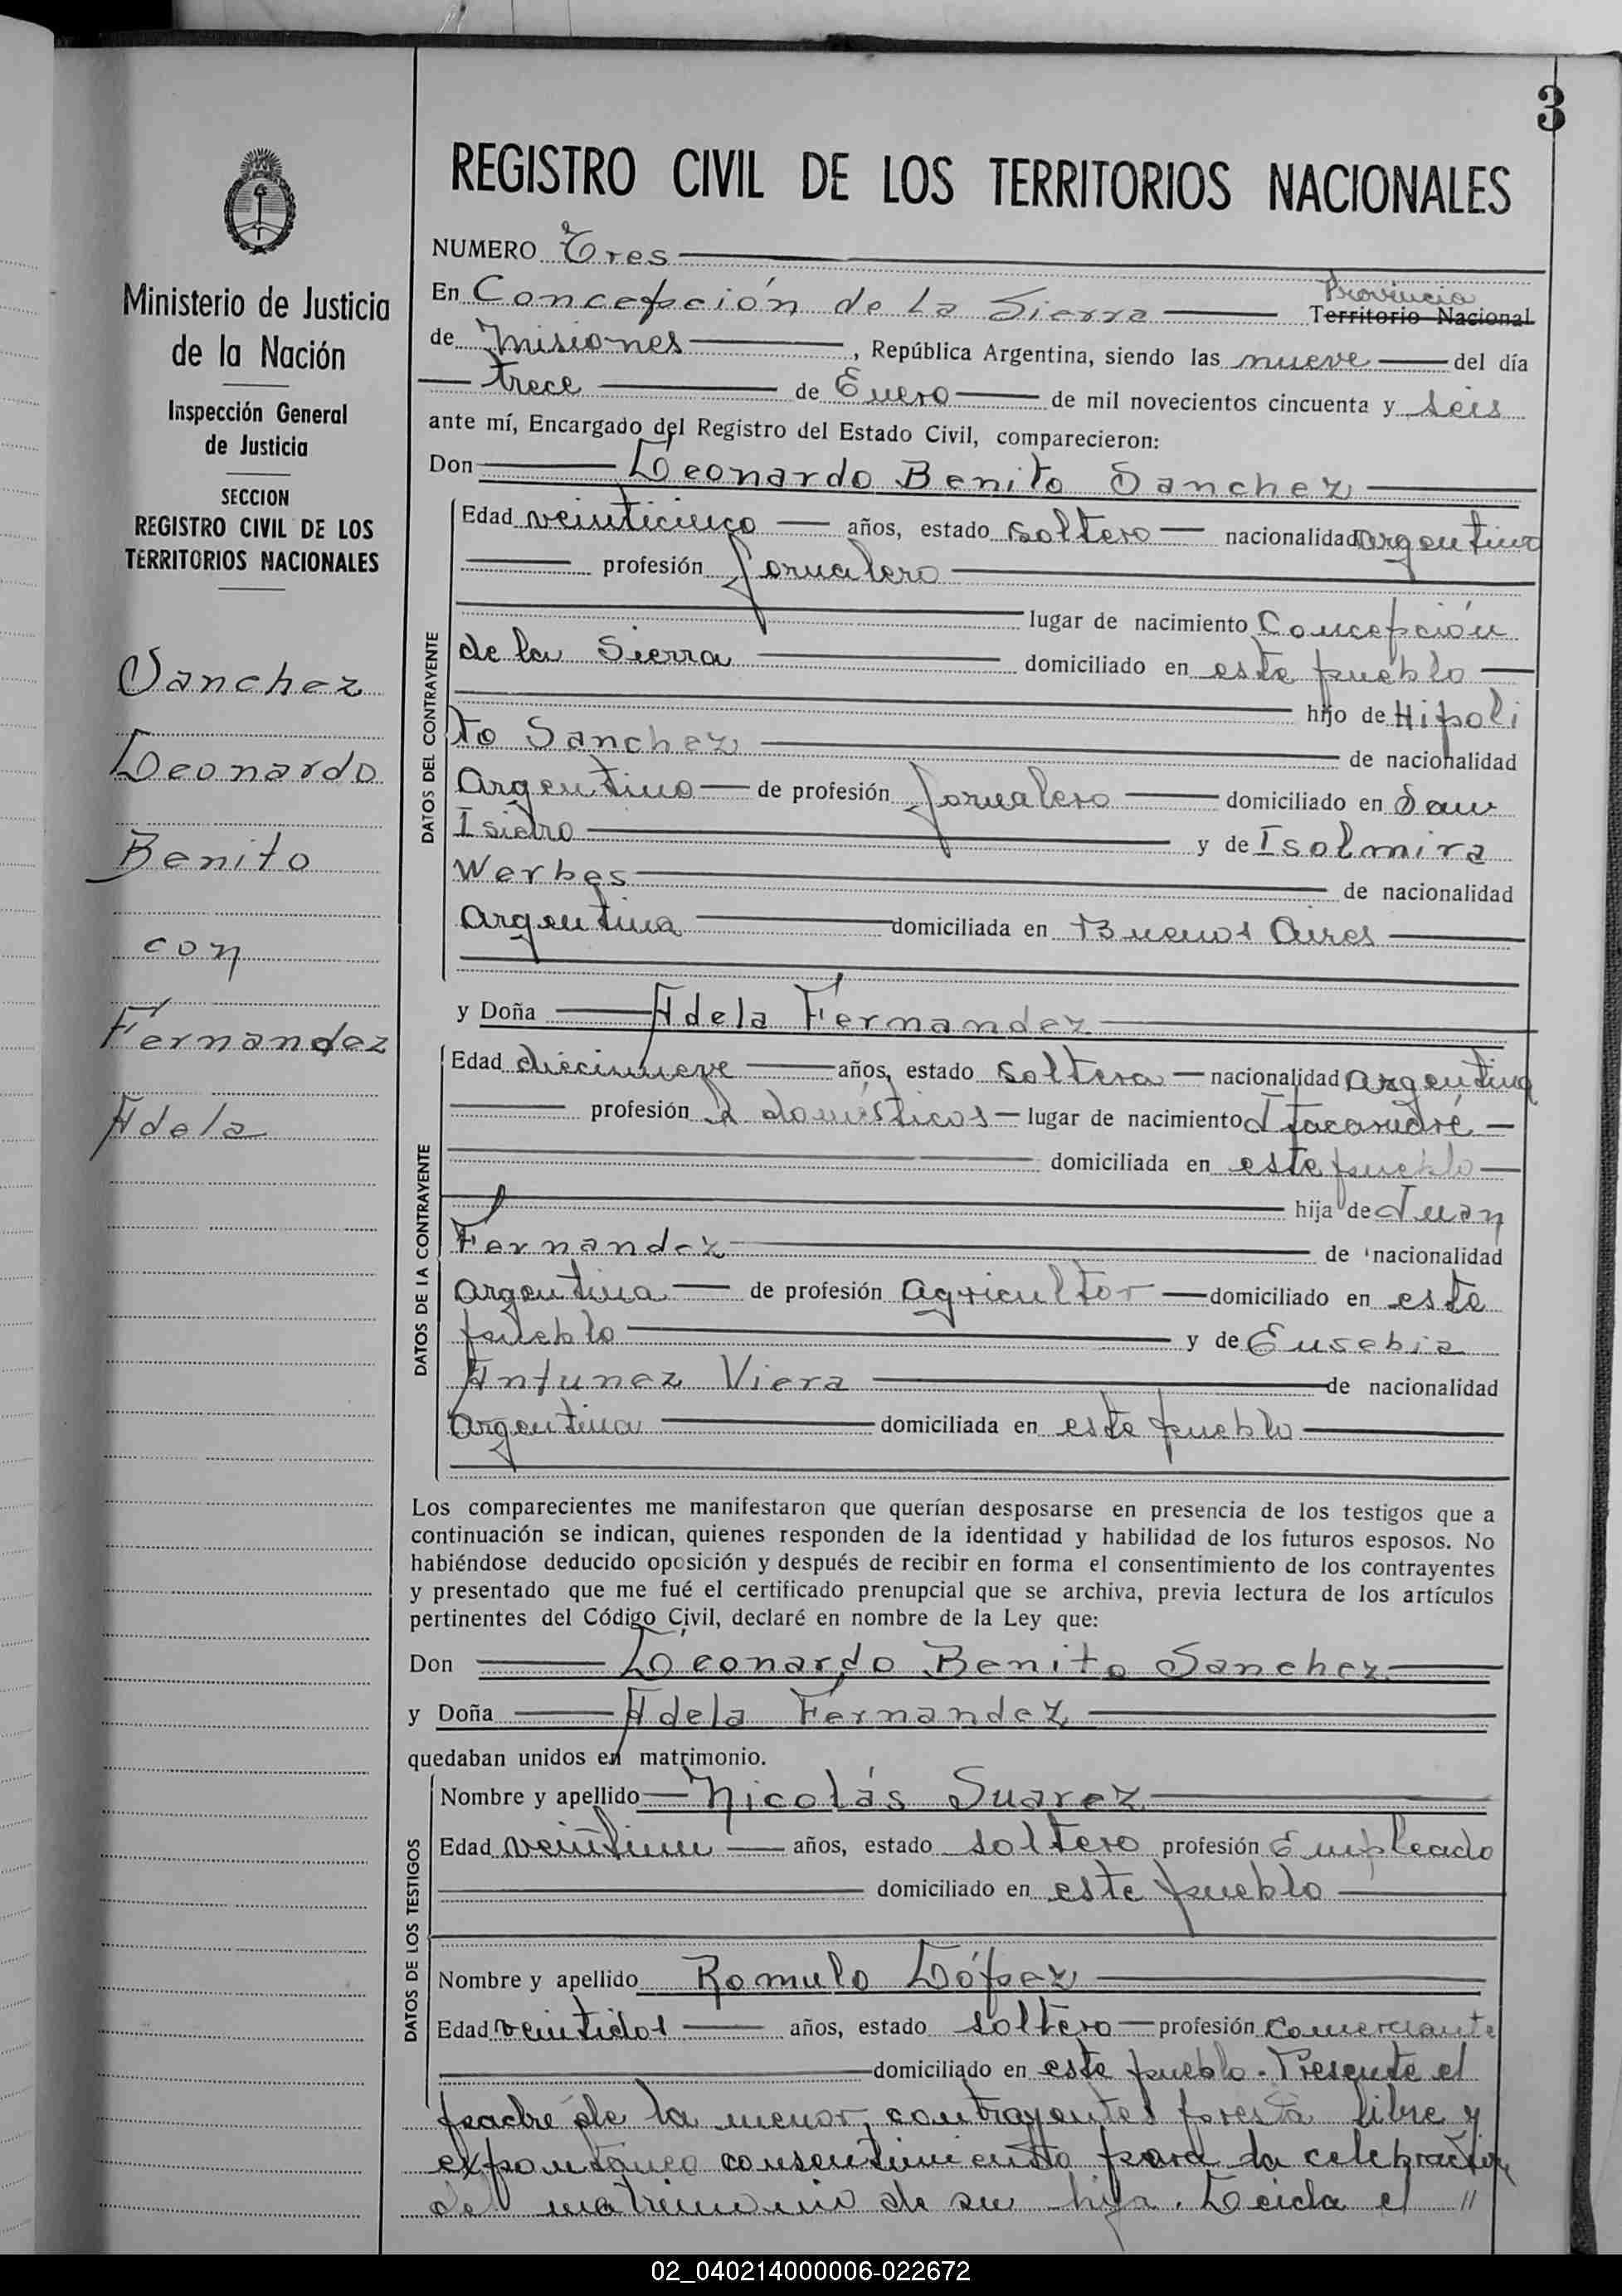 3
REGISTRO CIVIL DE LOS TERRITORIOS NACIONALES
Ministerio de Justicia
de la Nación
Inspección General
de Justicia
SECCION
REGISTRO CIVIL DE LOS
TERRITORIOS NACIONALES
Sanchez
Leonardo
Benito
con
Fernandez
Adela
NUMERO Tres
Provincia
En Concepción de La Sierra Territorio Nacional
de Misiones, República Argentina, siendo las nueve del día
trece de Enero de mil novecientos cincuenta y seis
ante mí, Encargado del Registro del Estado Civil, comparecieron:
Don Leonardo Benito Sanchez
DATOS DEL CONTRAYENTE
Edad veinticinco años, estado soltero nacionalidad argentino
profesión Jornalero
lugar de nacimiento Concepción
de la Sierra domiciliado en este pueblo
hijo de Hipoli
to Sanchez de nacionalidad
Argentino de profesión Jornalero domiciliado en San
Isidro y de Isolmira
Werbes de nacionalidad
argentina domiciliada en Buenos Aires
y Doña Adela Fernandez
DATOS DE LA CONTRAYENTE
Edad diecinueve años, estado soltera nacionalidad argentina
profesión domésticos lugar de nacimiento Itacaruaré
domiciliada en este pueblo
hija de Juan
Fernandez de nacionalidad
argentina de profesión agricultor domiciliado en este
pueblo y de Eusebia
Antunez Viera de nacionalidad
argentina domiciliada en este pueblo
Los comparecientes me manifestaron que querían desposarse en presencia de los testigos que a
continuación se indican, quienes responden de la identidad y habilidad de los futuros esposos. No
habiéndose deducido oposición y después de recibir en forma el consentimiento de los contrayentes
y presentado que me fué el certificado prenupcial que se archiva, previa lectura de los artículos
pertinentes del Código Civil, declaré en nombre de la Ley que:
Don Leonardo Benito Sanchez
y Doña Adela Fernandez
quedaban unidos en matrimonio.
DATOS DE LOS TESTIGOS
Nombre y apellido Nicolás Suarez
Edad veintiun años, estado soltero profesión Empleado
domiciliado en este pueblo
Nombre y apellido Romulo López
Edad veintidos años, estado soltero profesión comerciante
domiciliado en este pueblo. Presente el
padre de la menor, contrayentes presta libre y
expontaneo consentimiento para la celebración
del matrimonio de su hija. Leida el //
02_040214000006-022672